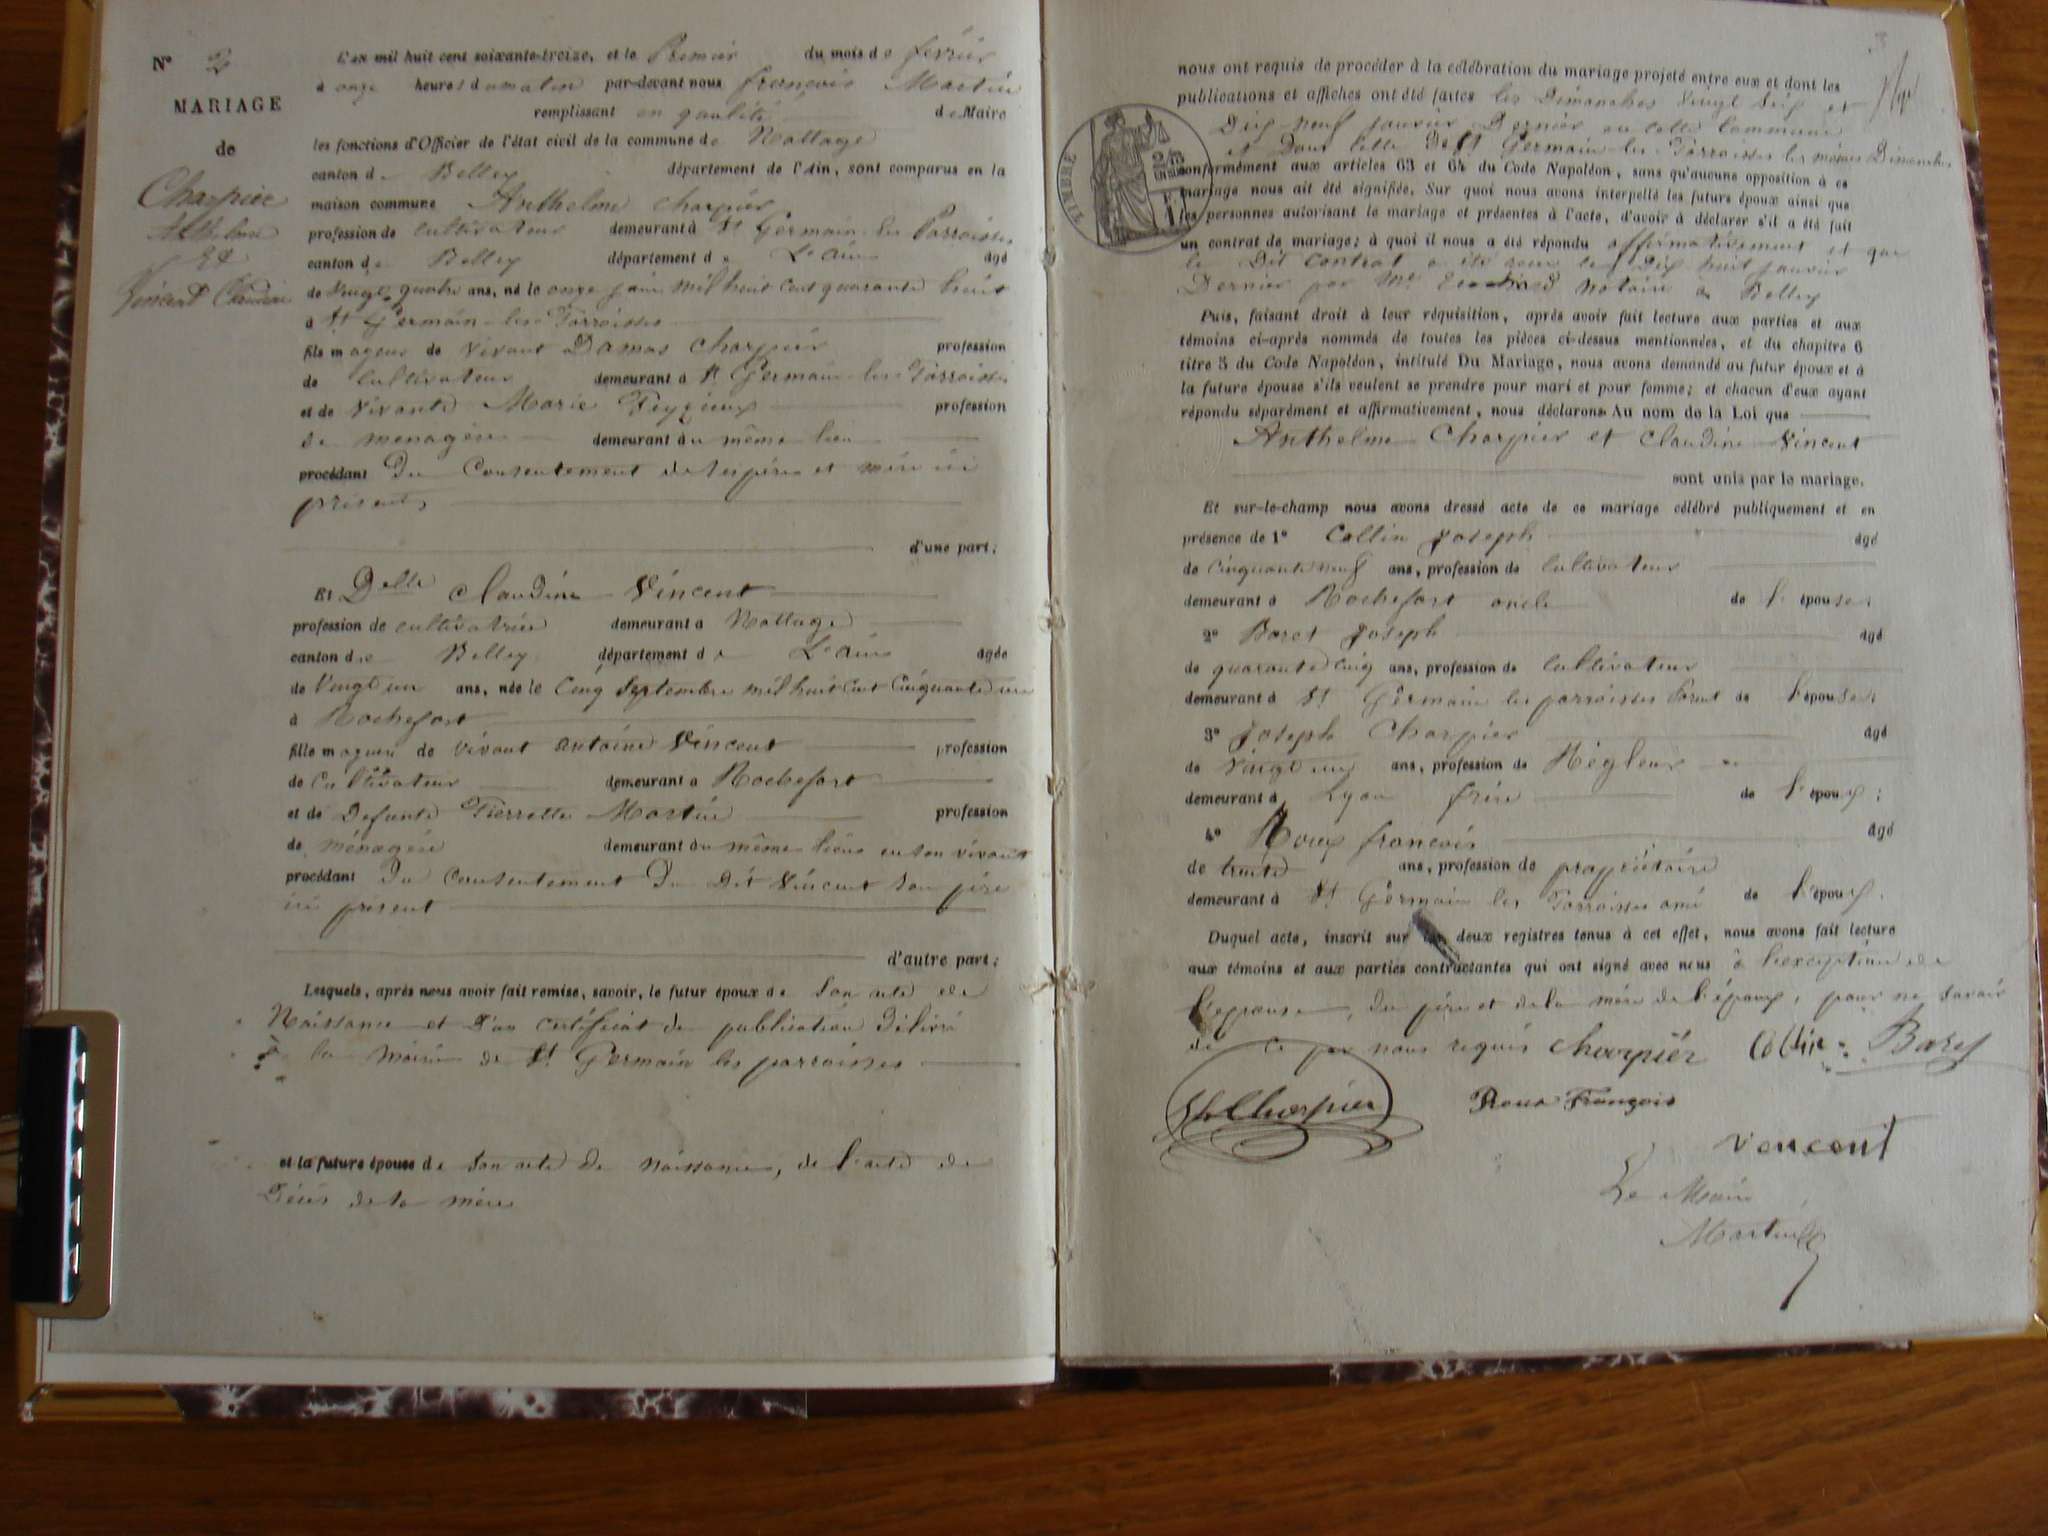 N° 2
MARIAGE
de
Charpier
Anthelme
Et
Vincent Claudine
L'an mil huit cent soixante-treize, et le Premier du mois de fevrier
à onze heures du matin par-devant nous francois Martin
remplissant en qualité de Maire
les fonctions d'Officier de l'état civil de la commune de Nattage
canton de Belley département de l'Ain, sont comparus en la
maison commune Anthelme Charpier
profession de cultivateur demeurant à St Germain les Parroisses
canton de Belley département de L'ain âgé
de Vingt quatre ans, né le onze juin mil huit cent quarante huit
à St Germain les Parroisses
fils majeur de vivant Damas Charpier profession
de cultivateur demeurant à St Germain les Parroisses
et de vivante Marie Peyzieux profession
de menagère demeurant au même lieu
procédant Du Consentement de ses père et mère ici
présents
d'une part;
Et Delle Claudine Vincent
profession de cultivatrice demeurant à Nattage
canton de Belley département de L'ain âgée
de Vingt un ans, née le Cinq Septembre mil huit cent cinquante un
à Rochefort
fille majeure de vivant antoine Vincent profession
de Cultivateur demeurant à Rochefort
et de Defunte Pierrette Martin profession
de ménagère demeurant au même lieu en son vivant
procédant Du Consentement Du Dit Vincent son père
ici présent
d'autre part;
Lesquels, après nous avoir fait remise, savoir, le futur époux de Son acte de
Naissance et D'un certificat de publication Délivré
à la mairie de St Germain les parroisses
et la future épouse de Son acte de naissance, de l'acte de
Décès de sa mère
3
nous ont requis de procéder à la célébration du mariage projeté entre eux et dont les
publications et affiches ont été faites les Dimanches Vingt Six et
Dix neuf janvier Dernier en cette Commune
et Dans celle De St Germain les Parroisses les mêmes Dimanches
conformément aux articles 63 et 64 du Code Napoléon, sans qu'aucune opposition à ce
mariage nous ait été signifiée. Sur quoi nous avons interpellé les futurs époux ainsi que
les personnes autorisant le mariage et présentes à l'acte, d'avoir à déclarer s'il a été fait
un contrat de mariage; à quoi il nous a été répondu affirmativement et que
le Dit contrat a été reçu le Dix huit janvier
Dernier par Me notaire à Belley
TIMBRE
Puis, faisant droit à leur réquisition, après avoir fait lecture aux parties et aux
témoins ci-après nommés de toutes les pièces ci-dessus mentionnées, et du chapitre 6
titre 5 du Code Napoléon, intitulé Du Mariage, nous avons demandé au futur époux et à
la future épouse s'ils veulent se prendre pour mari et pour femme; et chacun d'eux ayant
répondu séparément et affirmativement, nous déclarons Au nom de la Loi que
Anthelme Charpier et Claudine Vincent
sont unis par le mariage.
Et sur-le-champ nous avons dressé acte de ce mariage célébré publiquement et en
présence de 1° Collin Joseph âgé
de Cinquante neuf ans, profession de Cultivateur
demeurant à Rochefort oncle de l'épouse;
2° Baret Joseph âgé
de quarante cinq ans, profession de Cultivateur
demeurant à St Germain les parroisses de l'épouse;
3° Joseph Charpier âgé
de Vingt un ans, profession de Régleur
demeurant à Lyon frère de l'époux;
4° Roux francois âgé
de trente ans, profession de propriétaire
demeurant à St Germain les Parroisses ami de l'époux.
Duquel acte, inscrit sur les deux registres tenus à cet effet, nous avons fait lecture
aux témoins et aux parties contractantes qui ont signé avec nous à l'exception de
l'epouse, du père et de la mère de l'époux, pour ne savoir
de ce par nous requis Charpier Collin Baret
Charpier Roux François
Vencent
Le Maire
Martin